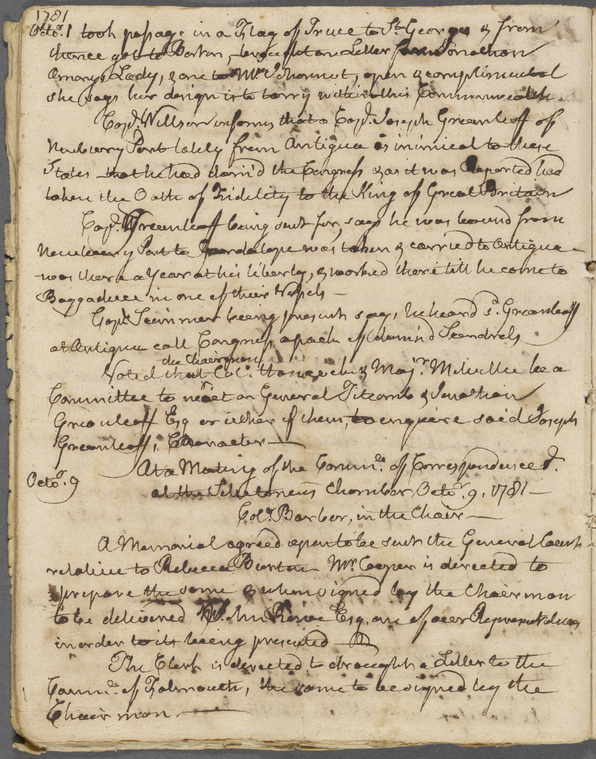 1781
Octo.r 1 took passage in a Flag of Truce to St. Georges & from
thence got to Boston, brought on Letter from Jonathan
Amorys Lady, & one to Mrs. open & complimental
she says her design is to tarry within this Commonwealth
Capt. Willson informs that a Capt. Joseph Greenleaf of
Newberry Port lately from Antigua is inimical to these
States that he had damn'd the Congress & as it was Reported had
taken the Oath of Fidelity to the King of Great Britain
Capt. Greenleaff being sent for, says he was bound from
Newberry Port to Guardalope was taken & carried to Antigua
was there a Year at his liberty, & worked there till he come to
Baggaduce in one of their Vessels —
Capt. being present says, he heard sd. Greenleaff
at Antigua call Congress a pack of damn'd Scandrels
the Chairman
Voted that Col. & Majr. Melville be a
Committee to meet on General Titcomb & Jonathan
Greenleaff Esq or either of them, to enquire said Joseph
Greenleaffs Character —
Octo.r 9
At a Meeting of the Comm.ee of Correspondence &.
at the Selectmens Chamber Octo.r 9, 1781 —
Col.o Barber, in the Chair —
A Memorial agreed upon to be sent the General Court
relative to Rebecca Burton Mr. Cooper is directed to
prepare the same & when signed by the Chairman
to be delivered Esq. one of our Representatives
in order to its being presented
The Clerk is directed to draught a Letter to the
Comm.ee of Falmouth, the same to be signed by the
Chairman —